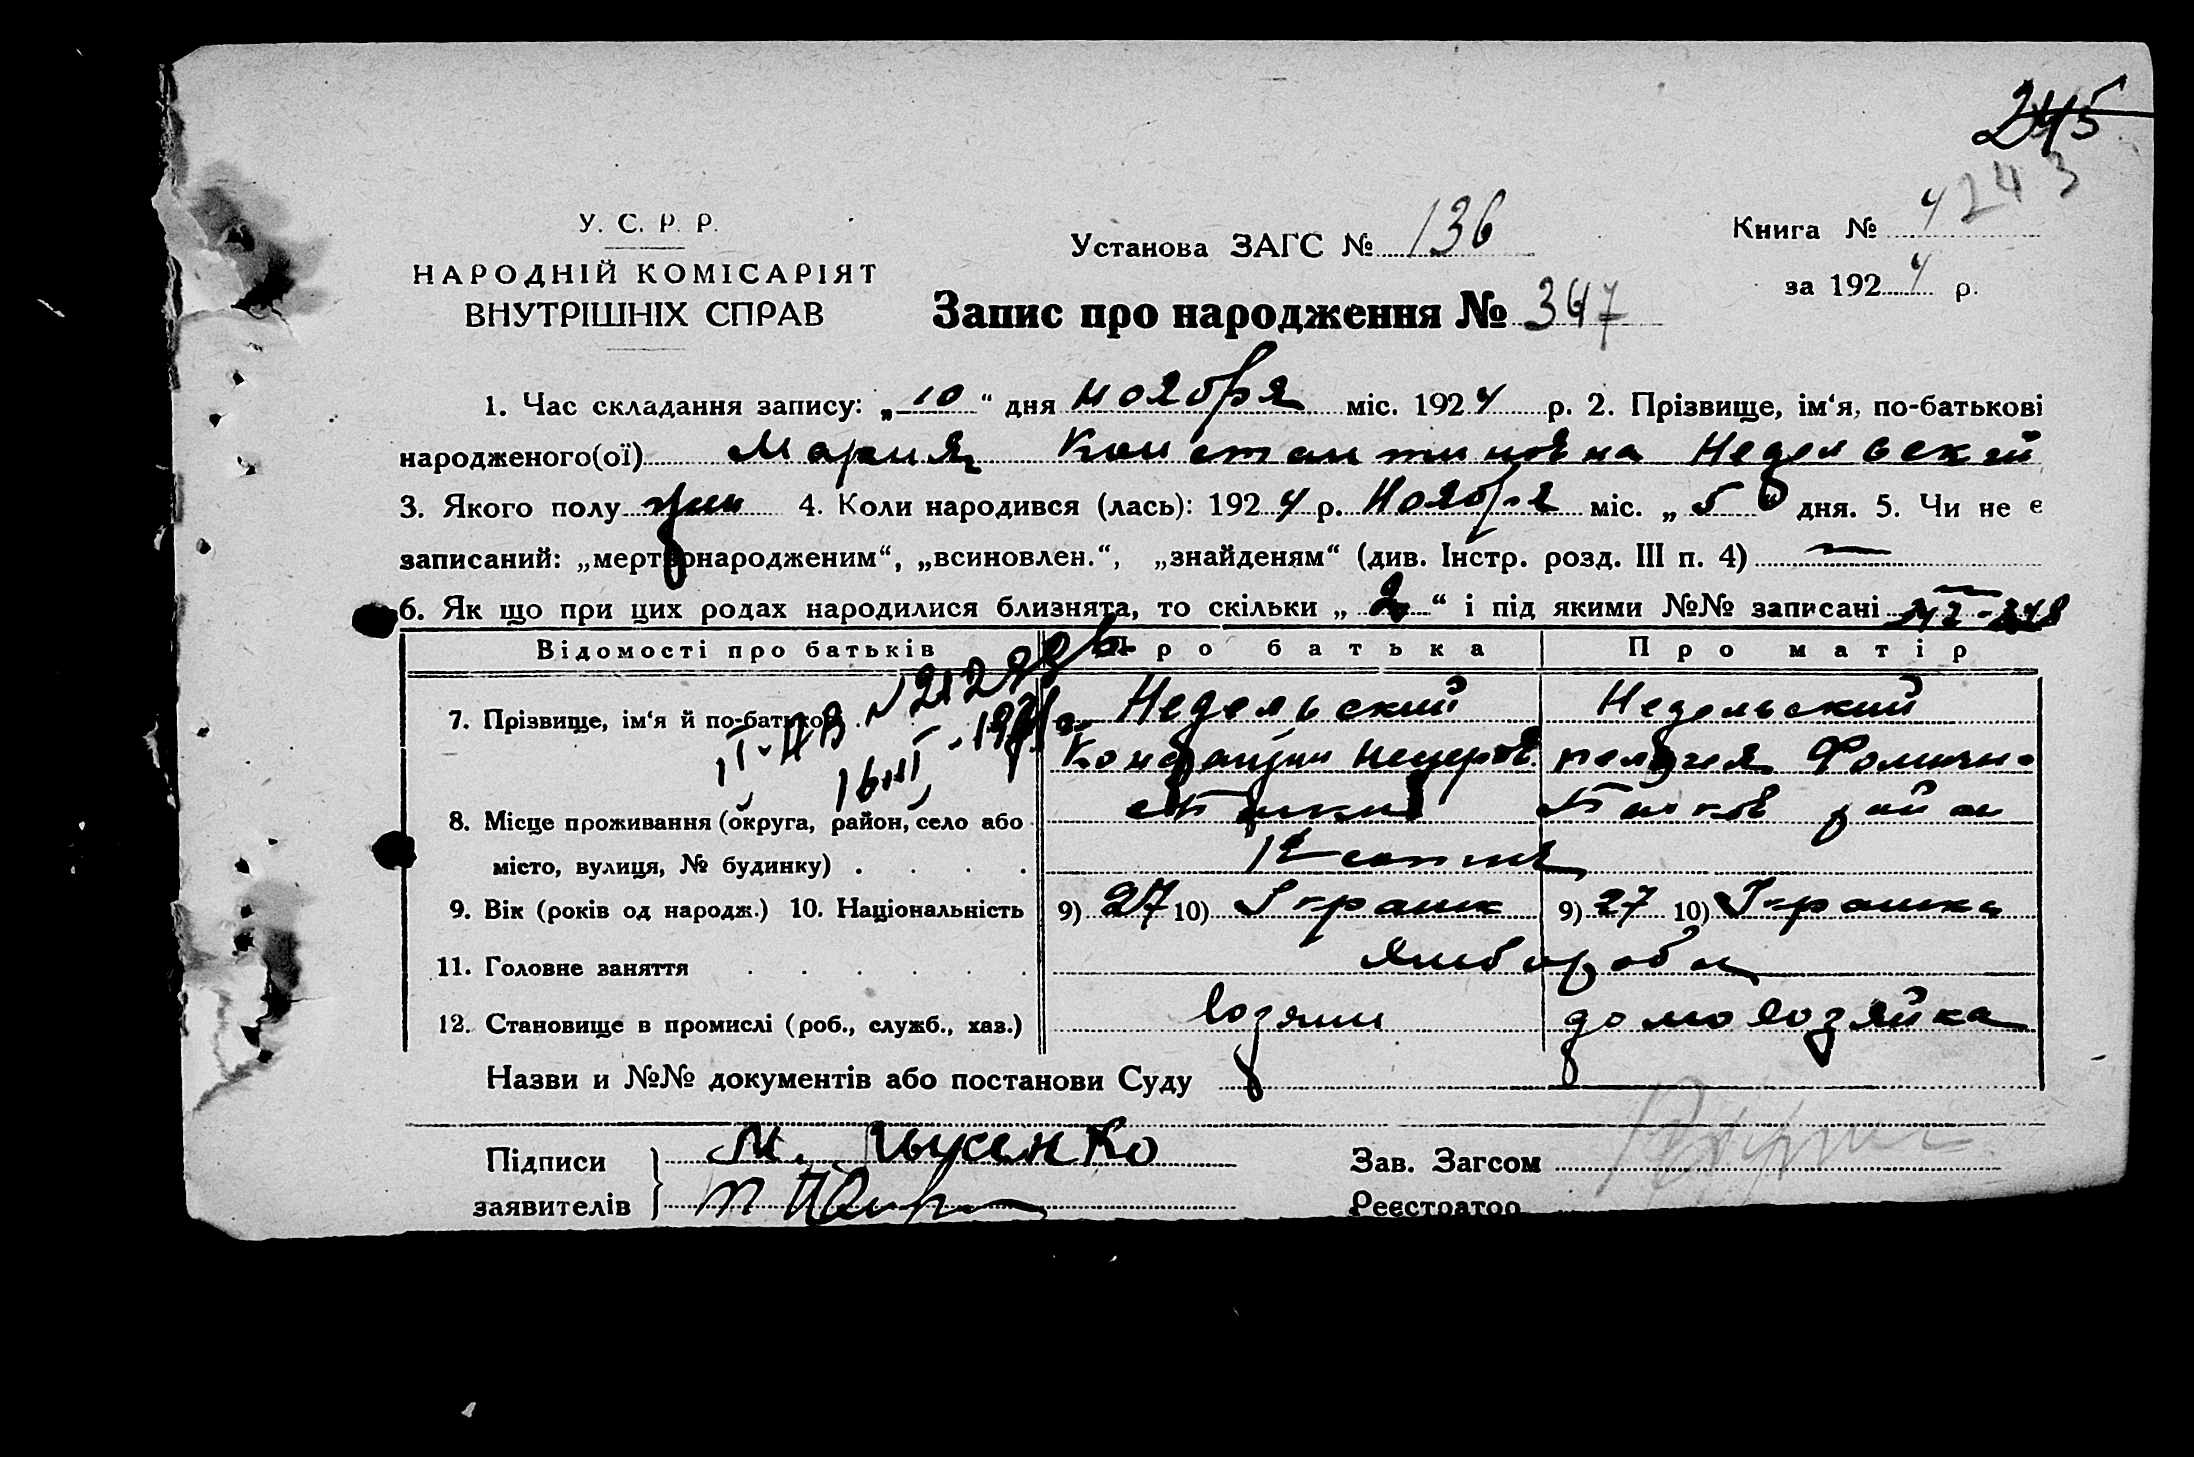 245
4243
У. С. Р. Р.
НАРОДНІЙ КОМІСАРІЯТ
ВНУТРІШНІХ СПРАВ
Установа ЗАГС № 136
Книга №
за 1924 р.
Запис про народження № 347
1. Час складання запису: „10“ дня ноября міс. 1924 р. 2. Прізвище, ім‘я, по-батькові
народженого(ої) Мария Константиновна Недельский
3. Якого полу жен 4. Коли народився (лась): 1924 р. Ноября міс. „5“ дня. 5. Чи не є
записаний: „мертвонародженим“, „всиновлен.“, „знайденям“ (див. Інстр. розд. III п. 4)
6. Як що при цих родах народилися близнята, то скільки „2“ і під якими №№ записані 347-348
Відомості про батьків Про батька Про матір
7. Прізвище, ім‘я й по-батькові Недельский Недельский
Фомичн
8. Місце проживання (округа, район, село або район
місто, вулиця, № будинку) сотня
9. Вік (років од народж.) 10. Національність 9) 27 10) 9) 27 10)
11. Головне заняття
12. Становище в промислі (роб., служб., хаз.) хозяин домохозяйка
Назви и №№ документів або постанови Суду
Підписи М.
заявителів
Зав. Загсом
Реєстратор